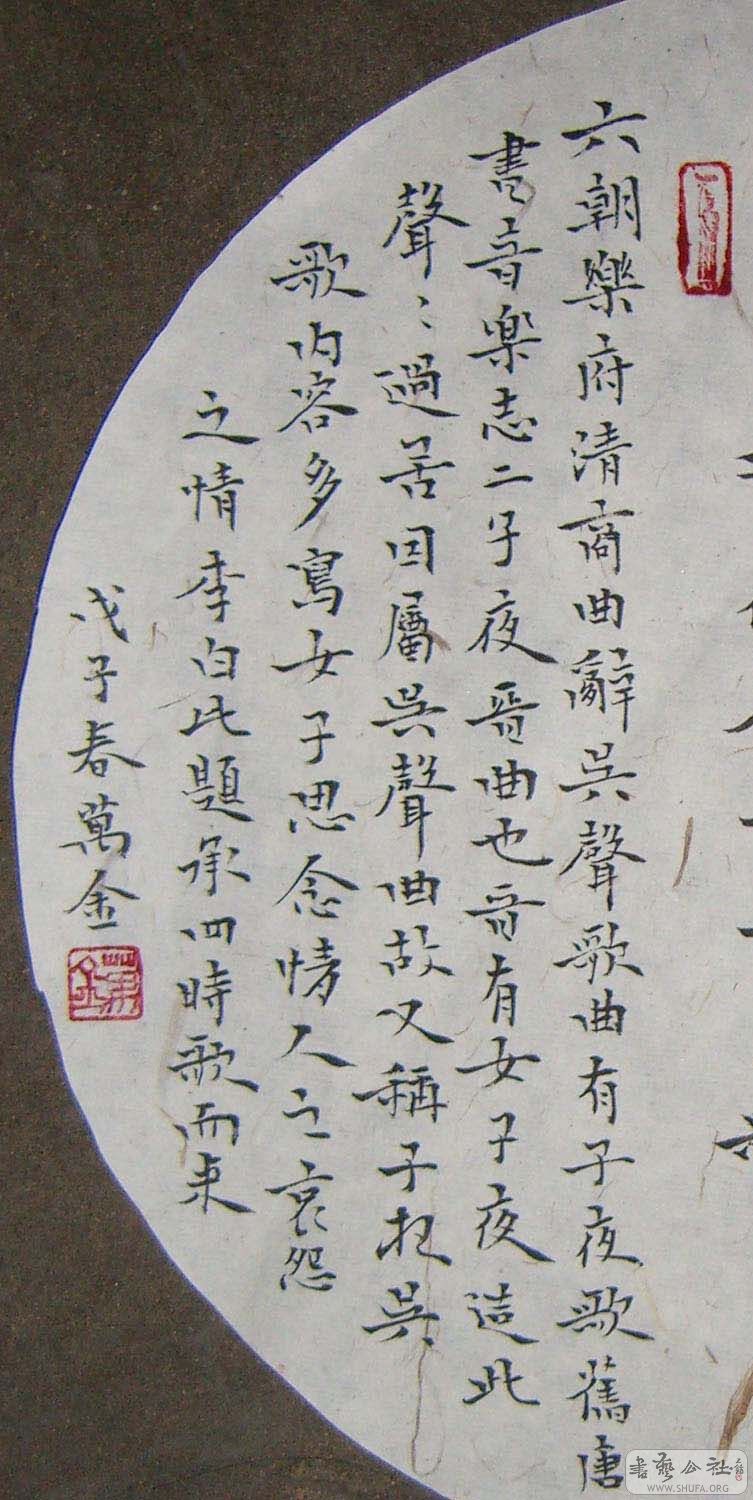 六朝樂府清商曲辭吳聲歌曲有子夜歌舊唐
書音楽志二子夜晉曲也晉有女子夜造此
聲〻過苦因屬吳聲曲故又稱子吳
歌内容多寫女子思念情人之哀怨
之情李白此題承四時歌而来
戊子春萬金
書藝公社
WWW.SHUFA.ORG